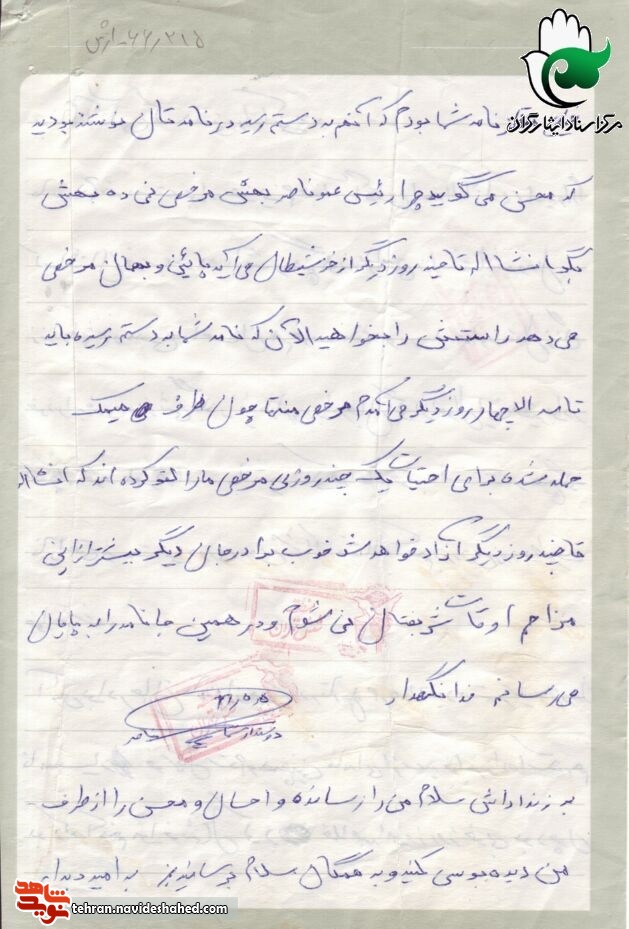 ۶۶/۲۱۵
مرکز اسناد ایثارگران
نامه شما بودم که آنهم به دستم رسید در نامه تان نوشته بودید
که محسن می گوید چرا رئیس عمو ناصر بهش مرخصی نمی ده بهش
بگو انشااله تا چند روز دیگر از خر شیطان می آید پائین و بهمان مرخصی
می دهد راستش را بخواهید الآن که نامه شما به دستم رسیده باید
تا سه الا چهار روز دیگر می آمدم مرخصی منتها چون طرف میمک
حمله شده برای احتیات یک چند روزی مرخصی ما را لغو کرده اند که انشااله
تا چند روز دیگر آزاد خواهد شد خوب برادر جان دیگر بیشتر از این
مزاحم اوقات شریفتان نمی شوم و در همین جا نامه را به پایان
می رسانم خدانگهدار
دوستدار شما ناصر
به زنداداش سلام من را رسانده و احسان و محسن را از طرف
من دیده بوسی کنید و به همگان سلام برسانید به امید دیدار
نوید شاهد
tehran.navideshahed.com